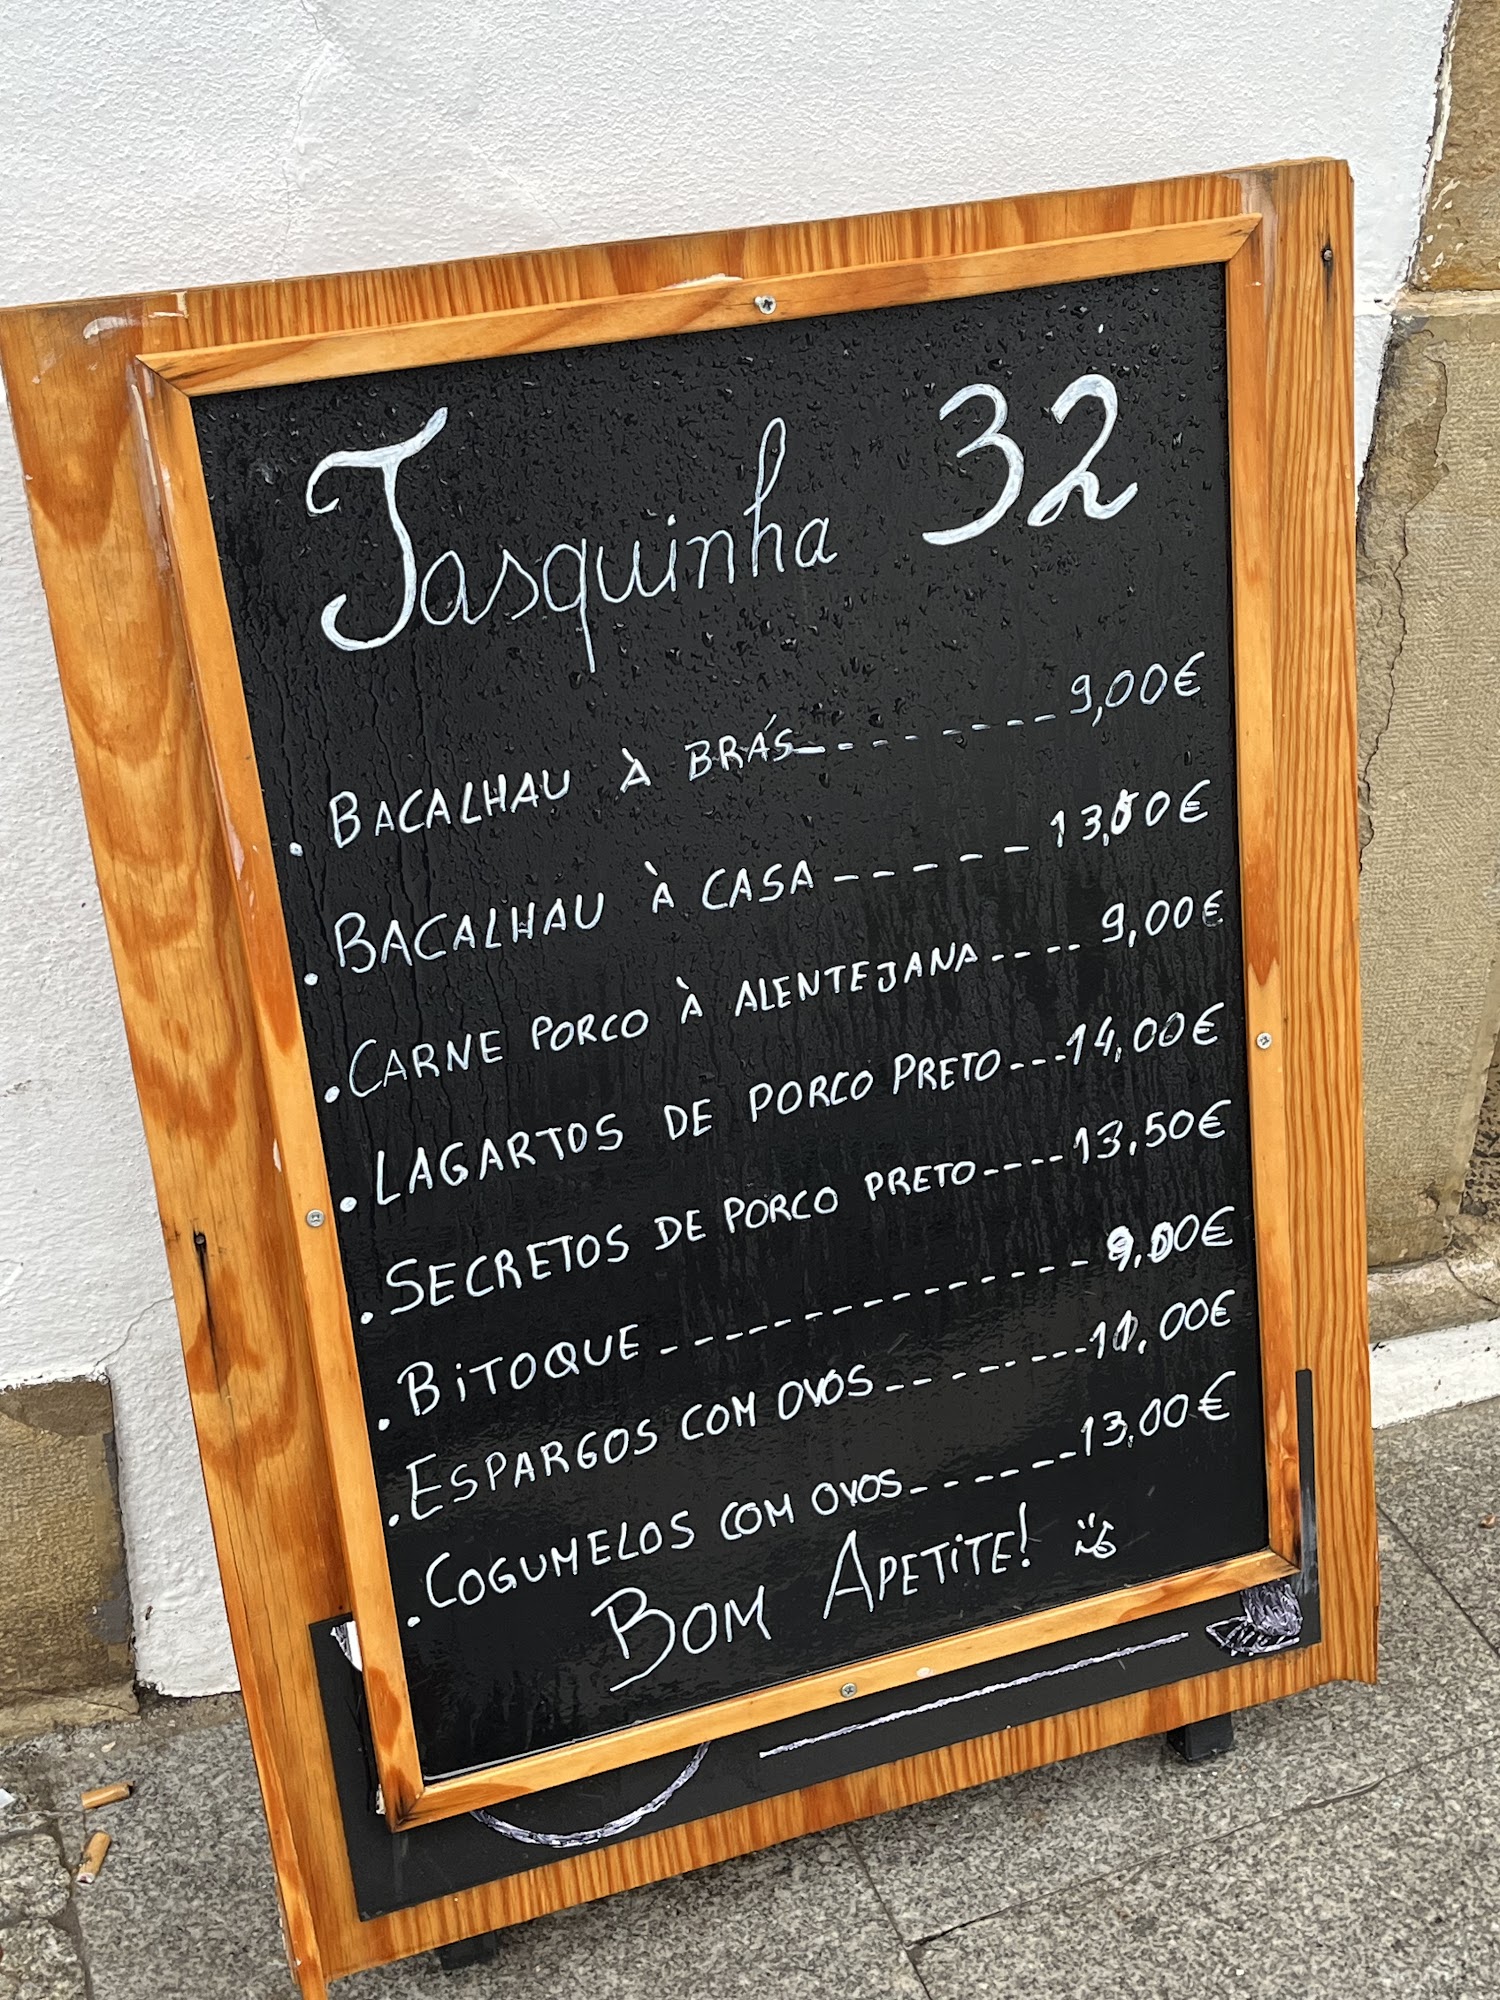 Tasquinha 32
. BACALHAU À BRÁS--------- 9,00€
. BACALHAU À CASA ------ 13,50€
. CARNE PORCO À ALENTEJANA ---- 9,00€
. LAGARTOS DE PORCO PRETO ---14,00€
. SECRETOS DE PORCO PRETO ----13,50€
. BiTOQUE --------------- 9,00€
. ESPARGOS COM OVOS ---------11,00€
. COGUMELOS COM OVOS ------13,00€
BOM APETiTE!